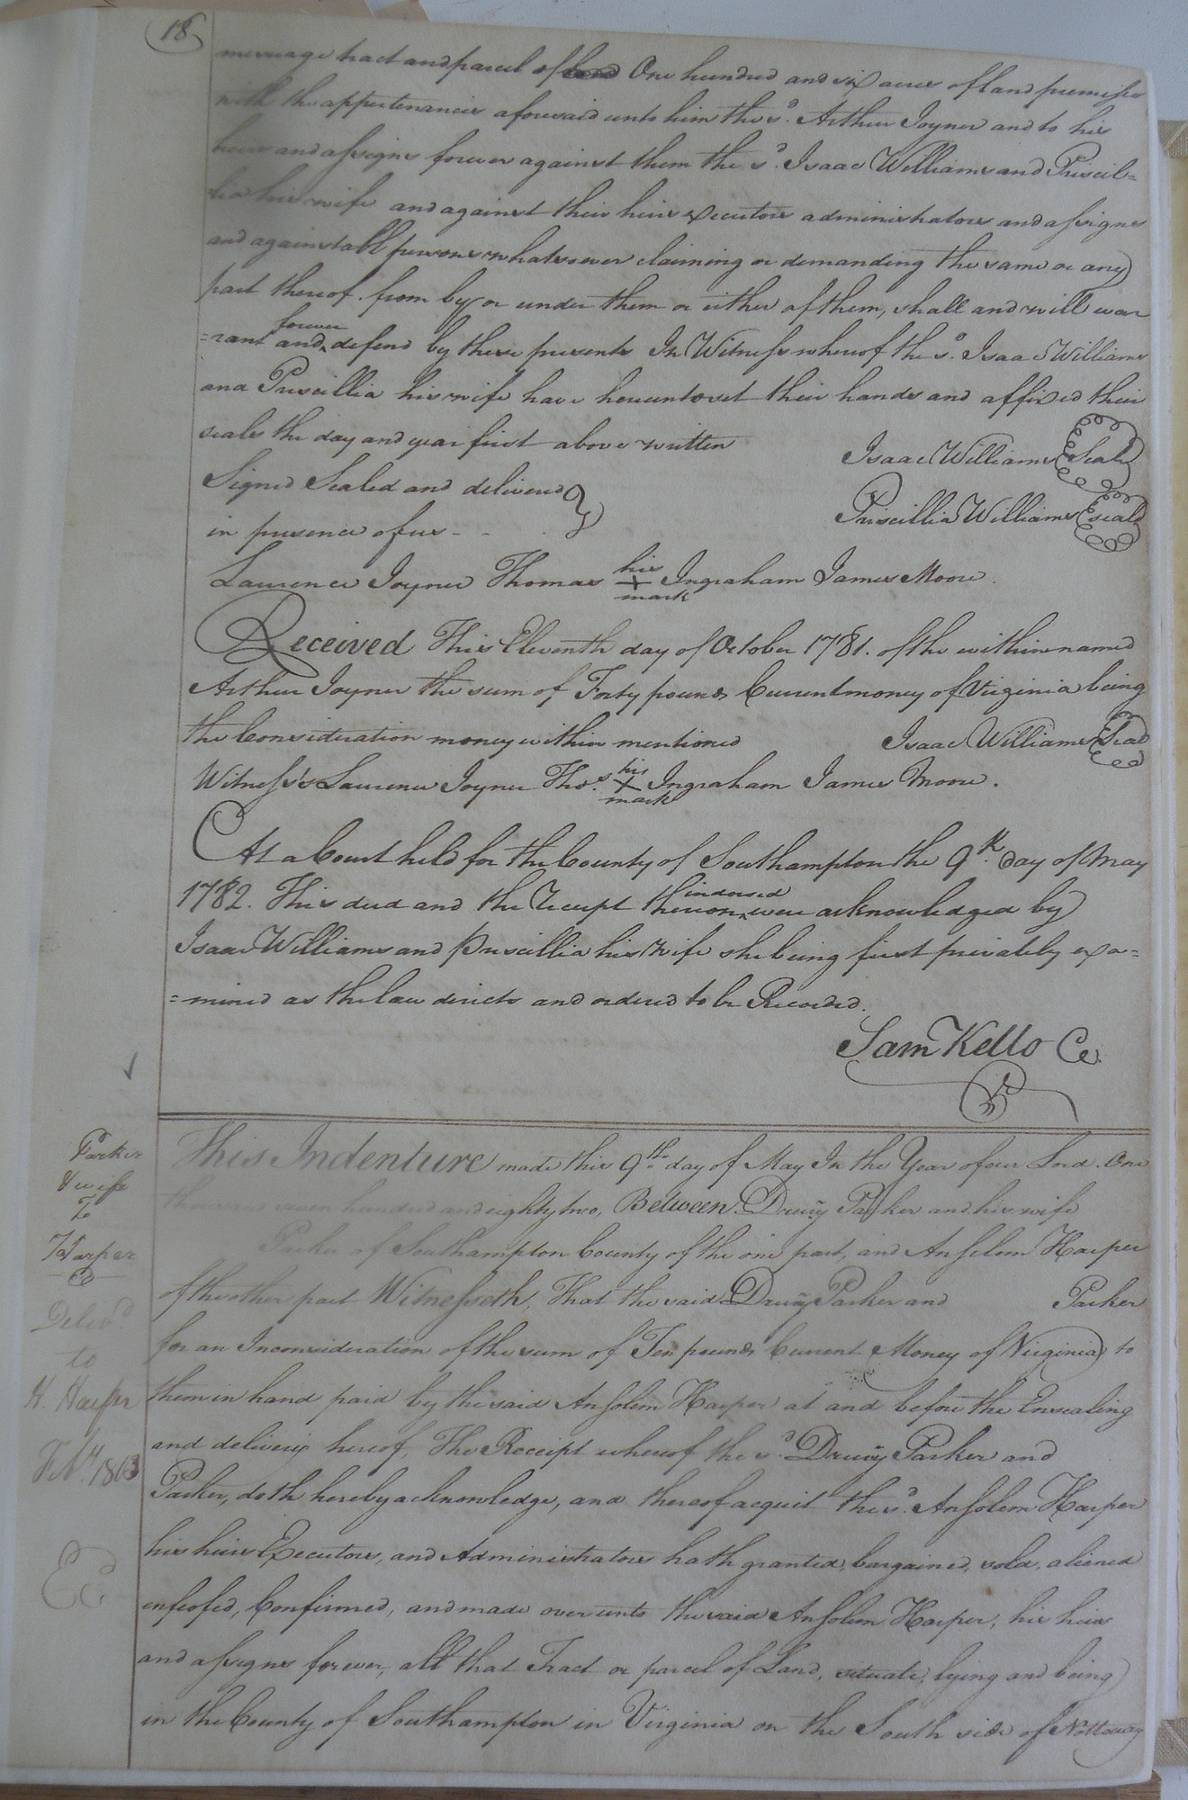 18
messuage tract and parcel of land One hundred and six acres of land premises
with the appertenancies aforesaid unto him the sd. Arthur Joyner and to his
heirs and assigns forever against them the sd. Isaac Williams and Priscil=
lia his wife and against their heirs executors administrators and assigns
and against all persons whatsoever claiming or demanding the same or any
part thereof from by or under them or either of them, shall and will war
=rant and forever defend by these presents In Witness whereof the sd. Isaac Williams
and Priscillia his wife have hereunto set their hands and affixed their
seals the day and year first above written
Isaac Williams Seal
Signed Sealed and delivered
Priscillia Williams Seal
in presence of us
Laurence Joyner Thomas his + mark Ingraham James Moore.
Received This Eleventh day of October 1781. of the within named
Arthur Joyner the sum of Forty pounds Current money of Virginia being
the Consideration money within mentioned Isaac Williams Seal
Witness's Laurence Joyner Thos. his + mark Ingraham James Moore.
At a Court held for the County of Southampton the 9th. day of May
1782. This deed and the Receipt thereon indorsed were acknowledged by
Isaac Williams and Priscillia his wife she being first privately exa=
=mined as the law directs and ordered to be Recorded.
Sam Kello Cc.
Parker
& wife
To
Harper
Deliv'd
to
H. Harper
Feby 1803
This Indenture made this 9th. day of May In the Year of our Lord One
thousand seven hundred and eighty two, Between Drury Parker and his wife
Parker of Southampton County of the one part, and Anselem Harper
of the other part Witnesseth, That the said Drury Parker and Parker
for an Inconsideration of the sum of Ten pounds Current Money of Virginia to
them in hand paid by the said Anselem Harper at and before the Ensealing
and delivery hereof, The Receipt whereof the sd. Drury Parker and
Parker, doth hereby acknowledge, and thereof acquit the sd. Anselem Harper
his heirs Executors, and Administrators hath granted, bargained, sold, aliened
enfeofed, Confirmed, and made over unto the said Anselem Harper, his heirs
and assigns forever, all that Tract or parcel of Land, situate, lying and being
in the County of Southampton in Virginia on the South side of Nottoway